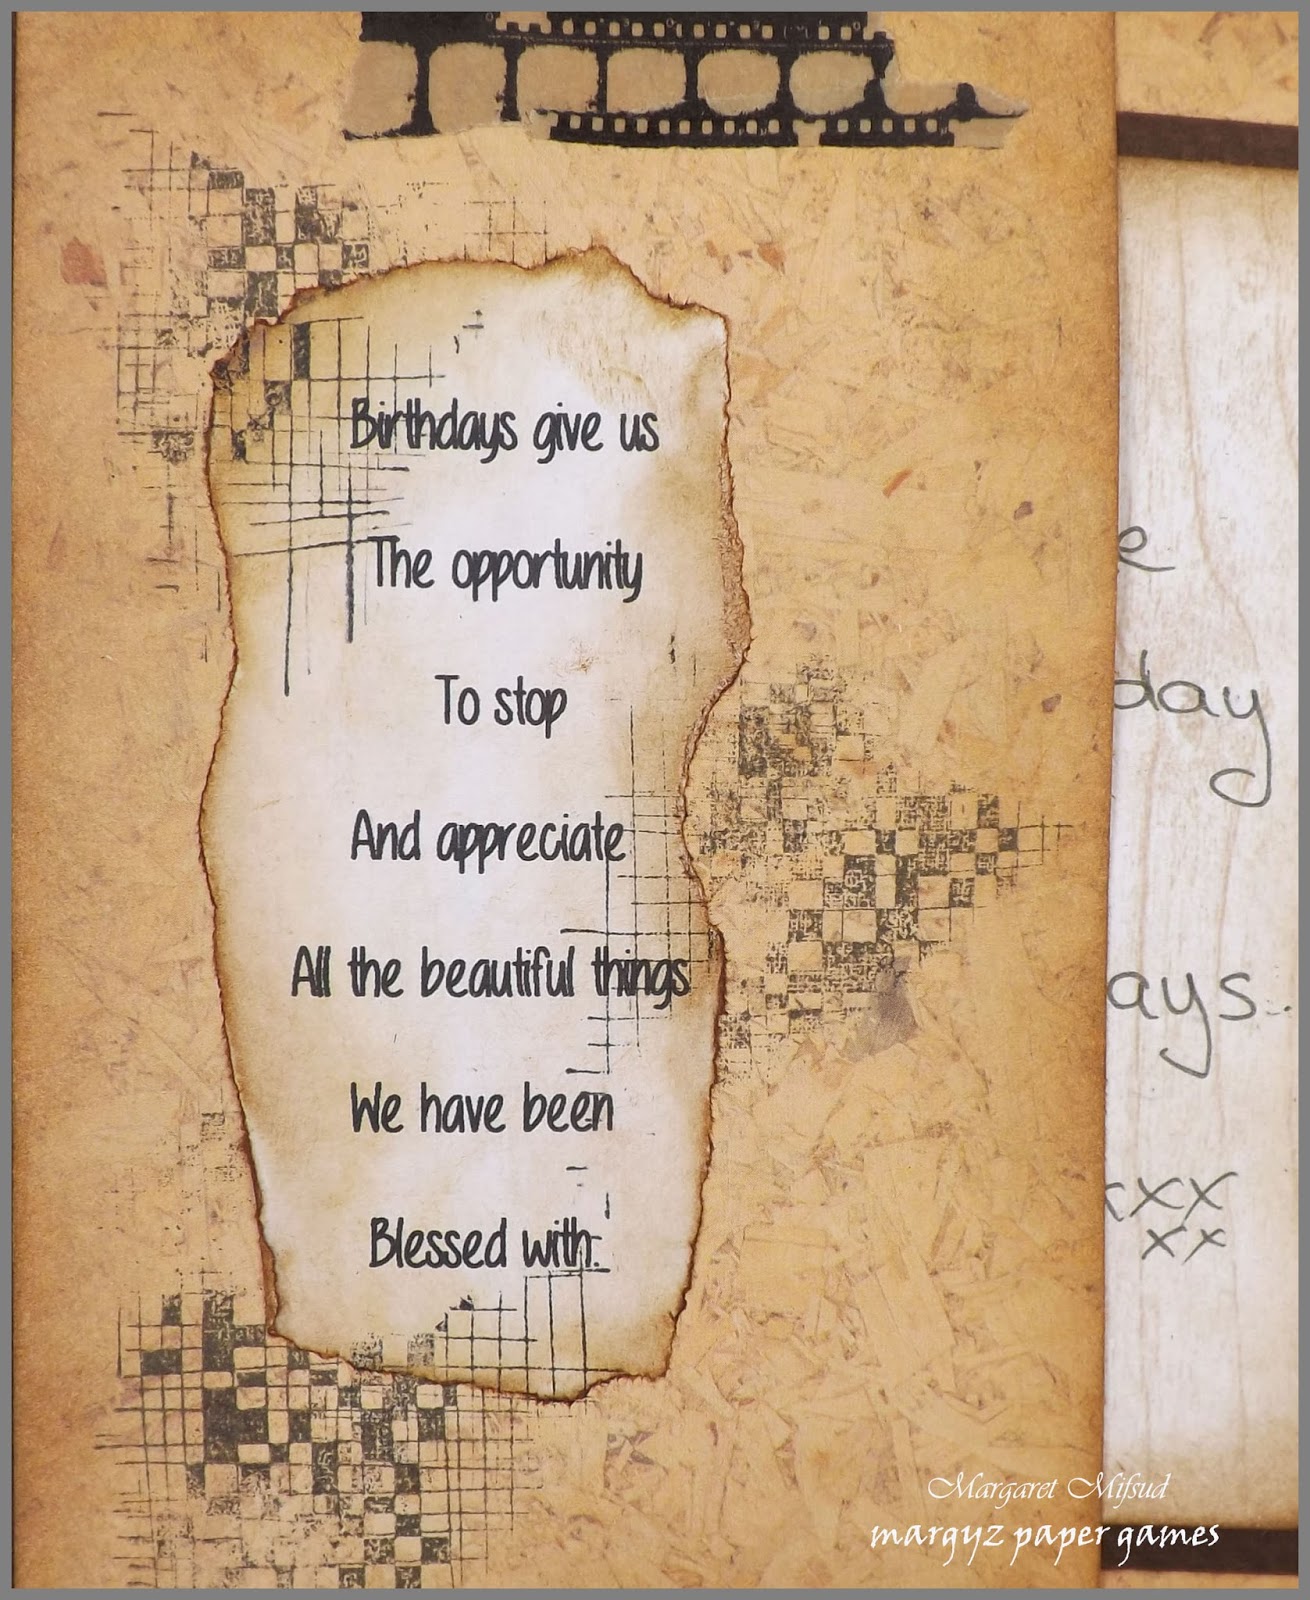 Birthdays give us
The opportunity
To stop
And appreciate
All the beautiful things
We have been
Blessed with.
day
xxx
xx
Margaret Mifsud
margyz paper games